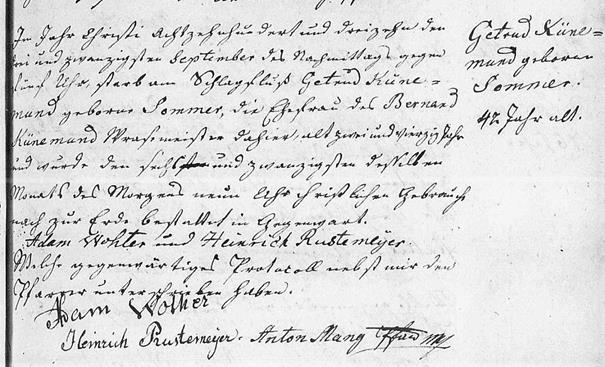 Im Jahr Christi Achtzehnhundert und dreizehn den
drei und zwanzigsten September des Nachmittags gegen
fünf Uhr, starb am Schlagfluß Getrud Küne=
mund geborne Sommer, die Ehefrau des Bernard
Künemund dahier, alt zwei und vierzig Jahr
und wurde den sechsten und zwanzigsten desselben
Monats des Morgens neun Uhr christlichen Gebrauch
nach zur Erde bestattet in Gegenwart.
Adam Wohter und Heinrich Rustemeyer.
Welche gegenwärtiges Protocoll nebst mir den
Pfarrer unterschrieben haben.
Adam Wother
Heinrich Rustemeyer. Anton Mang
Getrud Küne=
mund geborne
Sommer.
42 Jahr alt.